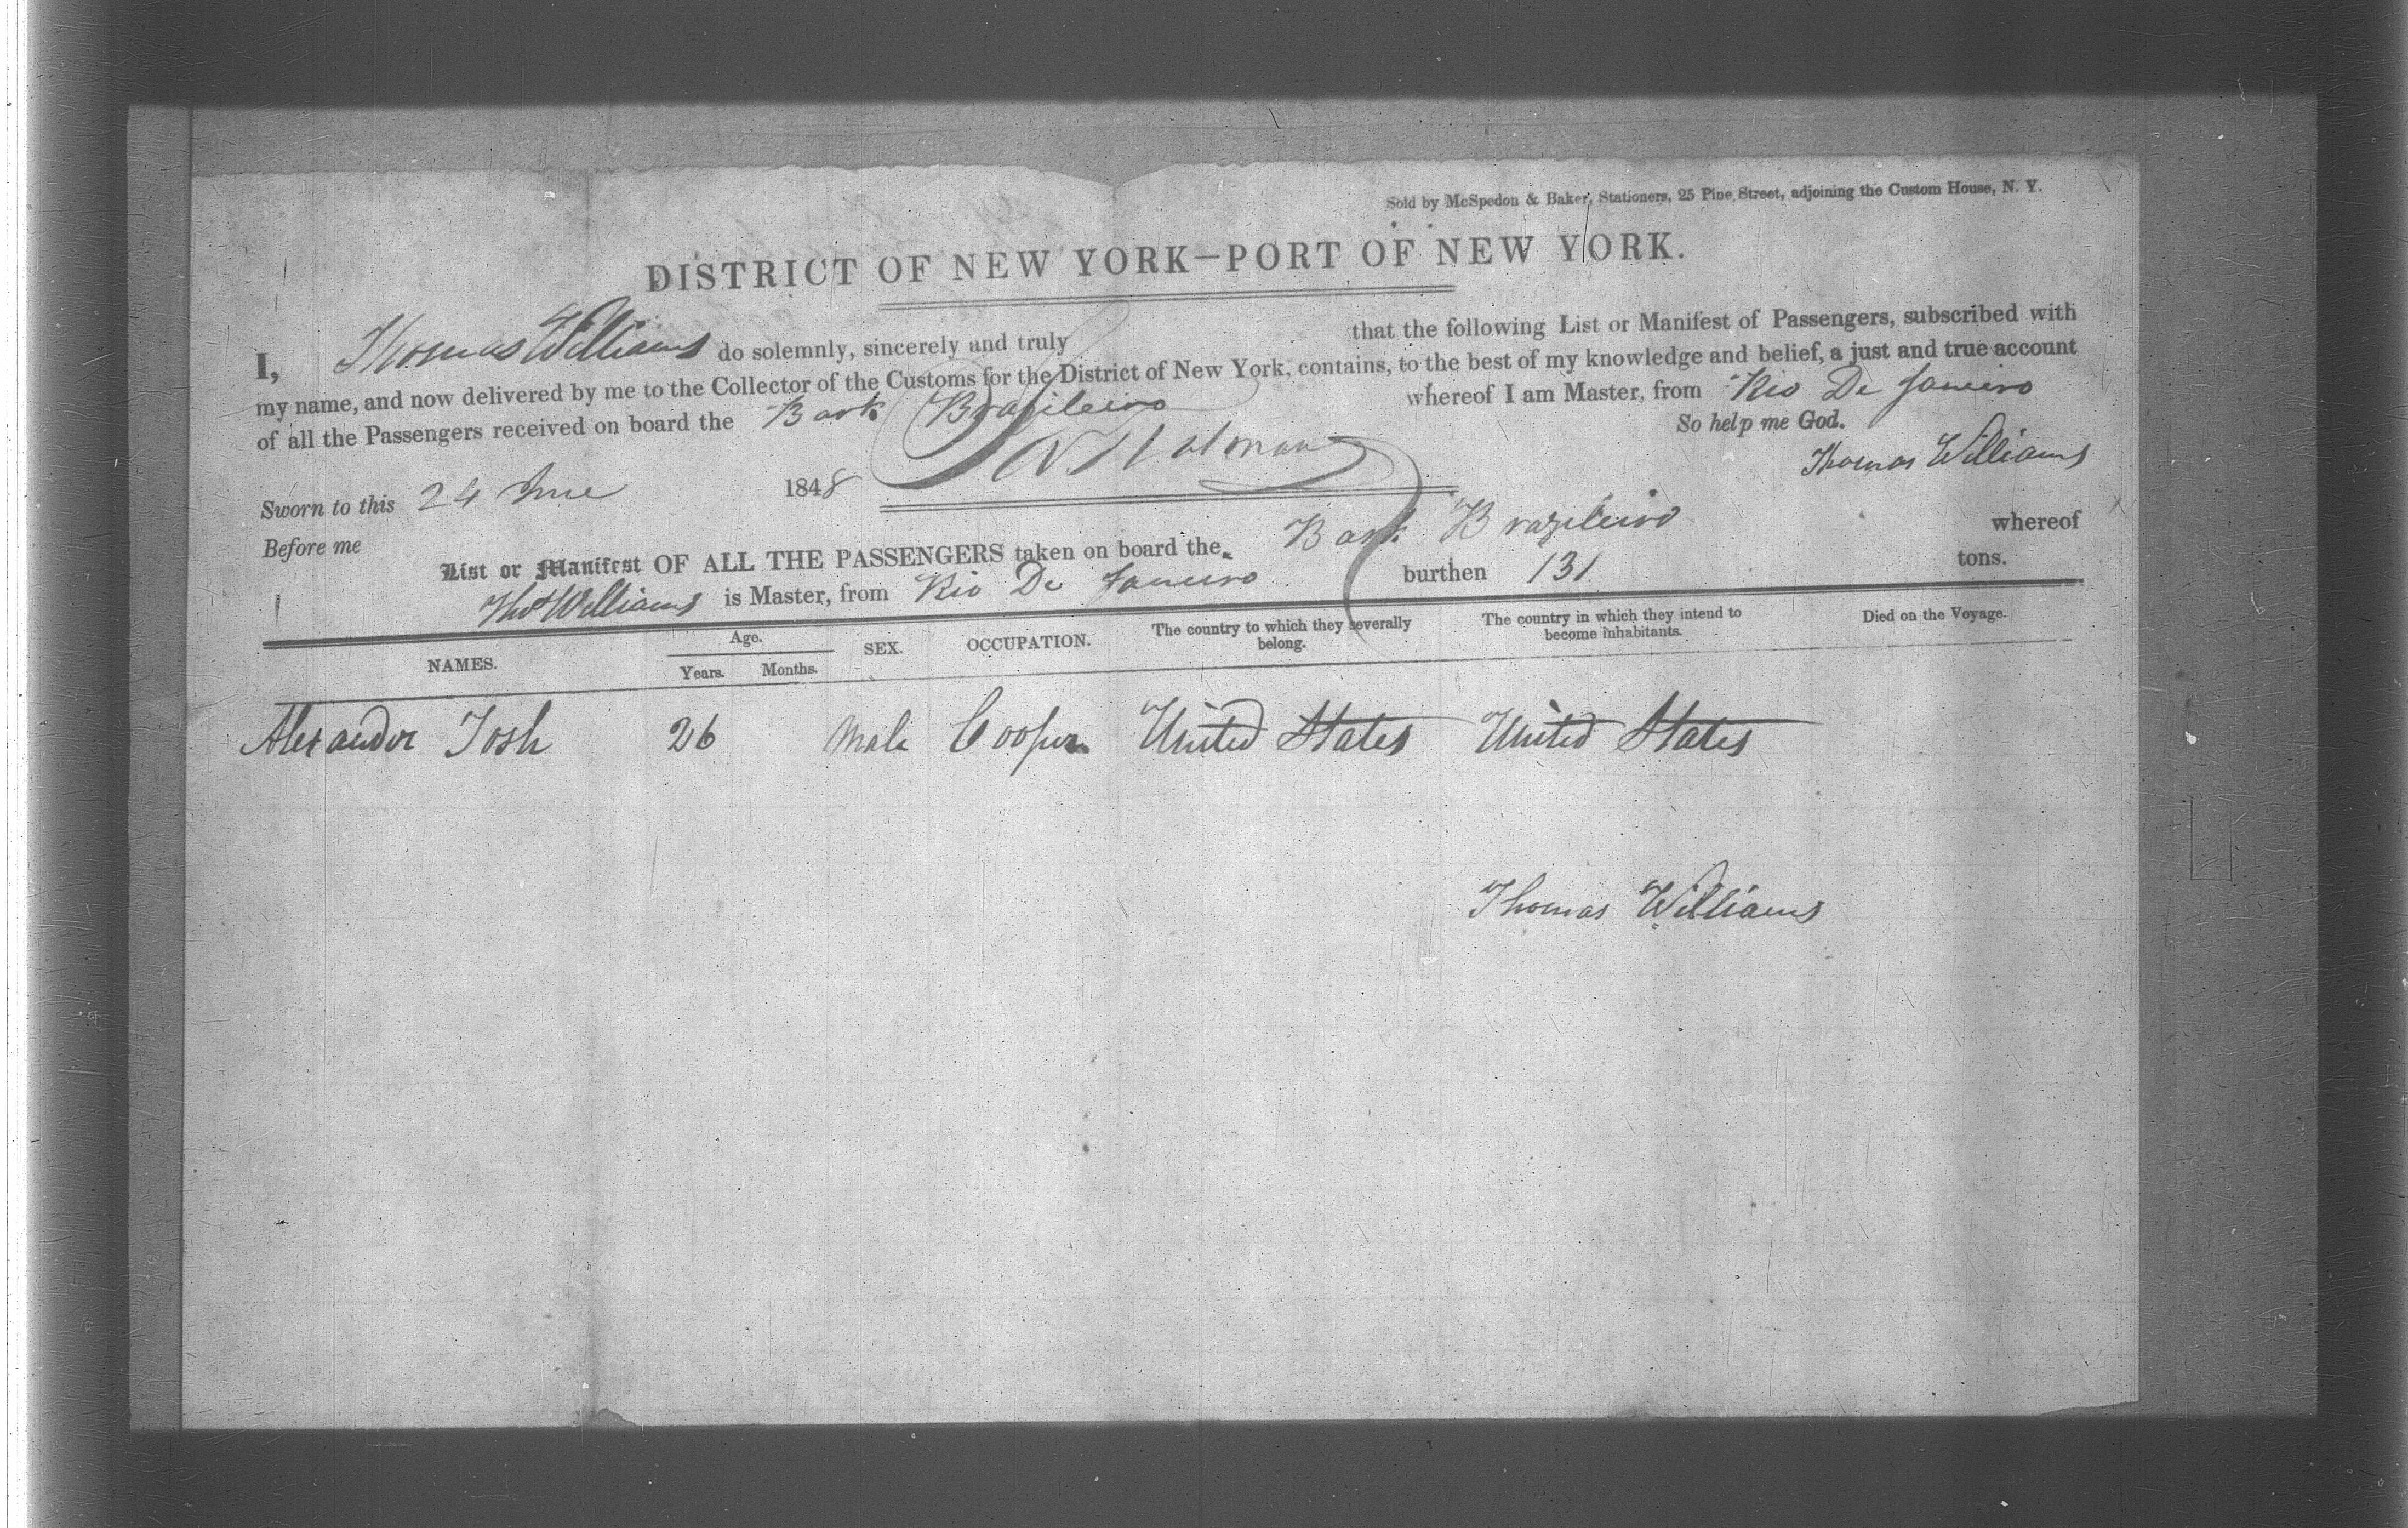 Sold by McSpedon & Baker, Stationers, 25 Pine Street, adjoining the Custom House, N. Y.
DISTRICT OF NEW YORK—PORT OF NEW YORK.
I, Thomas Williams do solemnly, sincerely and truly that the following List or Manifest of Passengers, subscribed with
my name, and now delivered by me to the Collector of the Customs for the District of New York, contains, to the best of my knowledge and belief, a just and true account
of all the Passengers received on board the Bark Brazileiro whereof I am Master, from Rio De Janeiro
So help me God.
Thomas Williams
Sworn to this 24 June 1848
Before me
List or Manifest OF ALL THE PASSENGERS taken on board the Bark Brazileiro whereof
Thos Williams is Master, from Rio De Janeiro burthen 131 tons.
NAMES. Age. Years. Months. SEX. OCCUPATION. The country to which they severally belong. The country in which they intend to become inhabitants. Died on the Voyage.
Alexander Tosh 26 Male Cooper United States United States
Thomas Williams